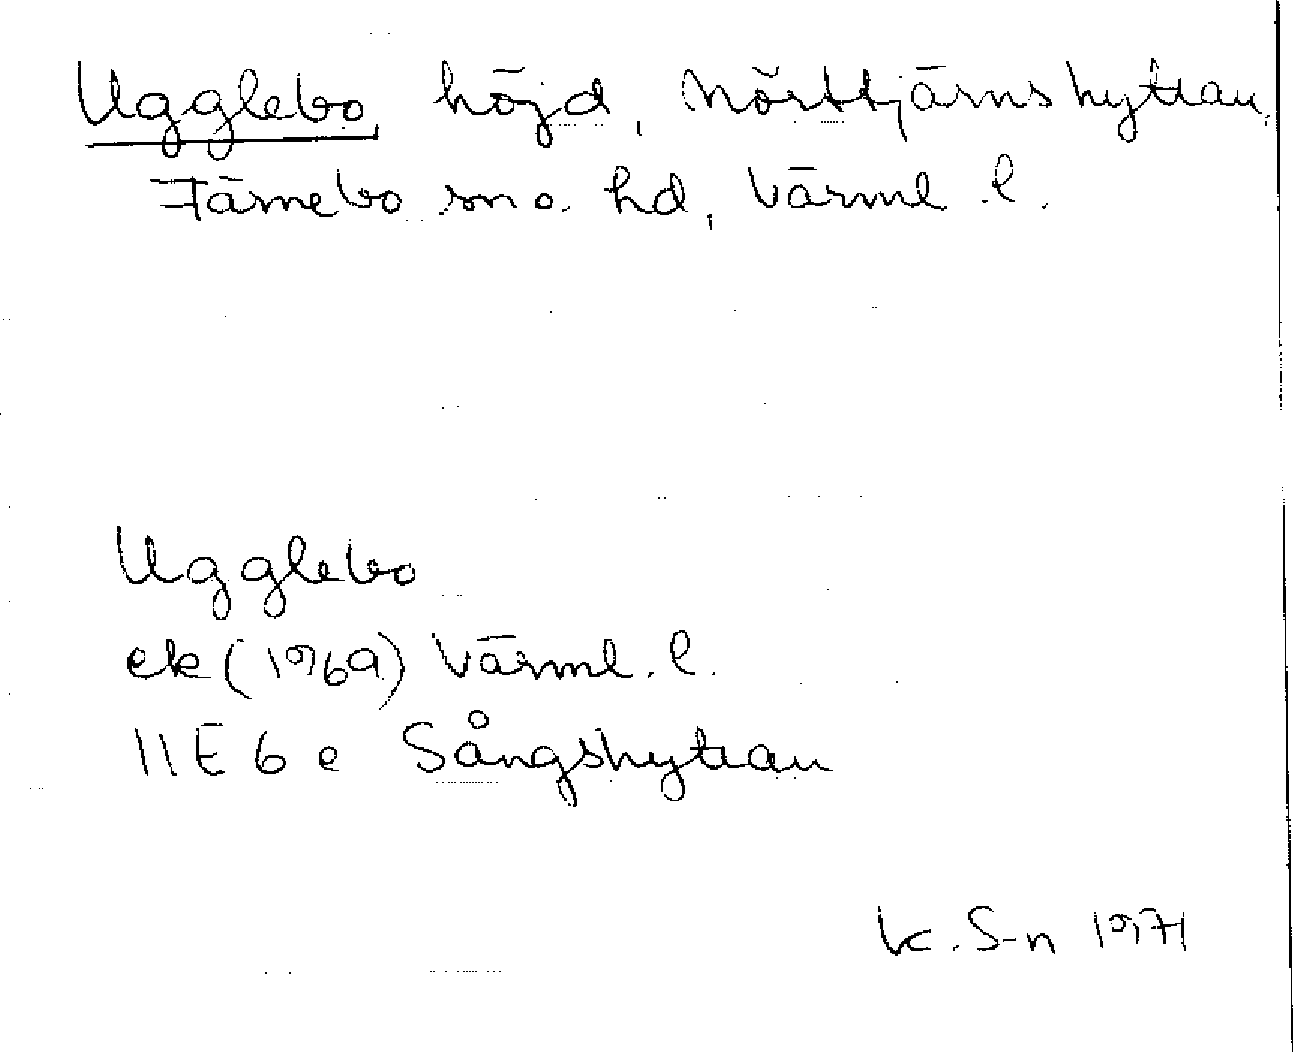 Ugglebo höjd, Nörttjärnshyttan,
Färnebo sn o. hd, Värml. l.
Ugglebo
ek (1969) Värml. l.
11E 6 e Sångshyttan
K. S-n 1971